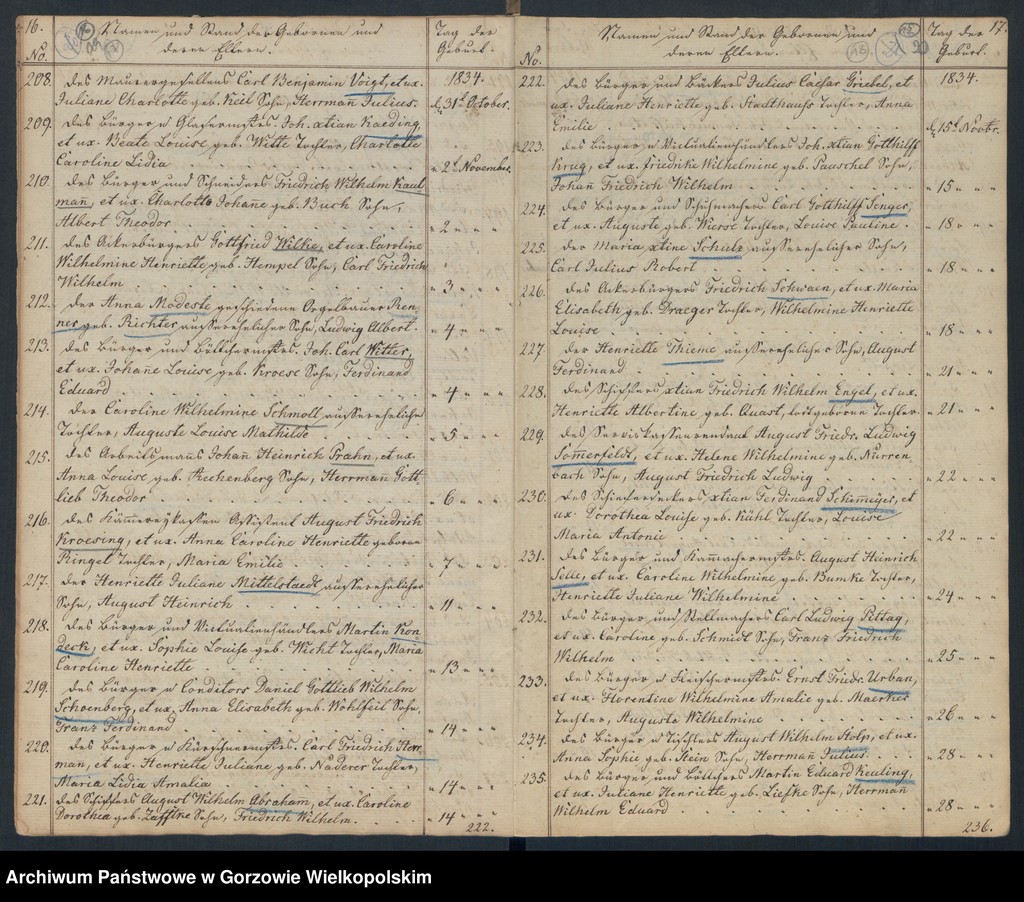 16.
No.
Namen und Stand der Gebornen und
deren Eltern.
Tag der
Geburt.
208. Des Maurergesellens Carl Benjamin Voigt, et ux.
1834.
Juliane Charlotte geb. Keil Sohn, Herrmañ Julius.
d. 31t October.
209. Des Bürger u Glasermstrs. Joh. xtian Kaeding,
et ux. Beate Louise geb. Witte Tochter, Charlotte
Caroline Lidia
" 2t November.
210. Des Bürger und Schneiders Friedrich Wilhelm Kaul
mañ, et ux. Charlotte Johañe geb. Buch Sohn,
Albert Theodor
" 2 " "
211. Des Ackerbürgers Gottfried Wilke, et ux. Caroline
Wilhelmine Henriette geb. Hempel Sohn, Carl Friedrich
Wilhelm
" 3 " "
212. Der Anna Modeste geschiedene Orgelbauer Ren-
ner geb. Richter außerehelicher Sohn, Ludwig Albert.
" 4 " "
213. Des Bürger und Böttchermstrs. Joh. Carl Wither,
et ux. Johañe Louise geb. Kroese Sohn, Ferdinand
Eduard
" 4 " "
214. Der Caroline Wilhelmine Schmolt außereheliche
Tochter, Auguste Louise Mathilde
" 5 " "
215. Des Arbeitsmañs Johañ Heinrich Prahn, et ux.
Anna Louise geb. Rechenberg Sohn, Herrmañ Gott
lieb Theodor
" 6 " "
216. Des Kämmereykassen Assistent August Friedrich
Kroesing, et ux. Anna Caroline Henriette geborne
Ringel Tochter, Maria Emilie
" 7 " "
217. Der Henriette Juliane Mittelstaedt außerehelicher
Sohn, August Heinrich
" 11 " "
218. Des Bürger und Victualienhändlers Martin Kon
deck, et ux. Sophie Louise geb. Wicht Tochter, Maria
Caroline Henriette
" 13 " "
219. Des Bürger u Conditors Daniel Gottlieb Wilhelm
Schoenberg, et ux. Anna Elisabeth geb. Wohlfeil Sohn,
Franz Ferdinand
" 14 " "
220. Des Bürger u Kürschnermstrs. Carl Friedrich Herr
man, et ux. Henriette Juliane geb. Naderer Tochter,
Maria Lidia Amalia
" 14 " "
221. Des Schiffers August Wilhelm Abraham, et ux. Caroline
Dorothea geb. Sohn, Friedrich Wilhelm.
" 14 " "
222.
17.
No.
Namen und Stand der Gebornen und
deren Eltern.
Tag der
Geburt.
222. Des Bürger und Bäckers Julius Caesar Griebel, et
1834.
ux. Juliane Henriette geb. Stadthaus Tochter, Anna
Emilie
d. 15t Novbr.
223. Des Bürger u Victualienhändlers Joh. xtian Gotthilff
Krug, et ux. Friedrike Wilhelmine geb. Pauschel Sohn,
Johañ Friedrich Wilhelm
" 15 " "
224. Des Bürger und Schuhmachers Carl Gotthilff Senger,
et ux. Auguste geb. Wierse Tochter, Louise Pauline
" 18 " "
225. Der Maria xtine Schulz außerehelicher Sohn,
Carl Julius Robert
" 18 " "
226. Des Ackerbürgers Friedrich Schwaen, et ux. Maria
Elisabeth geb. Draeger Tochter, Wilhelmine Henriette
Louise
" 18 " "
227. Der Henriette Thieme außerehelicher Sohn, August
Ferdinand
" 21 " "
228. Des Schiffers xtian Friedrich Wilhelm Engel, et ux.
Henriette Albertine geb. Quast, todtgeborne Tochter
" 21 " "
229. Des Serviskassenrendant August Friedr. Ludwig
Somerfeldt, et ux. Helene Wilhelmine geb. Nurren-
bach Sohn, August Friedrich Ludwig
" 22 " "
230. Des Schieferdeckers xtian Ferdinand Schemeyer, et
ux. Dorothea Louise geb. Kühl Tochter, Louise
Maria Antonie
" 22 " "
231. Des Bürger und Kammachermstrs. August Heinrich
Selle, et ux. Caroline Wilhelmine geb. Bumke Tochter,
Henriette Juliane Wilhelmine
" 24 " "
232. Des Bürger und Stellmachers Carl Ludwig Pittag,
et ux. Caroline geb. Schmidt Sohn, Franz Friedrich
Wilhelm
" 25 " "
233. Des Bürger u Fleischermstrs. Ernst Friedr. Urban,
et ux. Florentine Wilhelmine Amalie geb. Maerker
Tochter, Auguste Wilhelmine
" 26 " "
234. Des Bürger u Tischlers August Wilhelm Stolp, et ux.
Anna Sophie geb. Stein Sohn, Herrmañ Julius
" 28 " "
235. Des Bürger und Böttchers Martin Eduard Keuling,
et ux. Juliane Henriette geb. Liefke Sohn, Herrman
Wilhelm Eduard
" 28 " "
236.
Archiwum Państwowe w Gorzowie Wielkopolskim